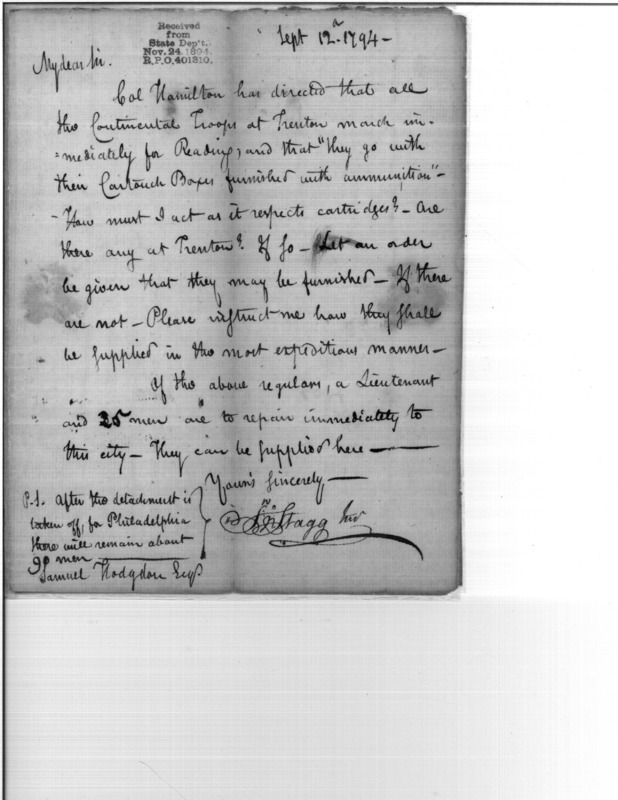 Received
from
State Dep't.
Nov. 24. 1894.
R.P.O. 401310.
Sept 12th 1794 -
My dear Sir.
Col Hamilton has directed that all
the Continental Troops at Trenton march im-
=mediately for Reading, and that "they go with
their Cartouch Boxes furnished with ammunition" -
How must I act as it respects cartridges? - Are
there any at Trenton? If So - Let an order
be given that they may be furnished - If there
are not - Please instruct me how they shall
be supplied in the most expeditious manner -
Of the above regulars, a Lieutenant
and 25 men are to repair immediately to
this city - They can be supplied here -
Yours Sincerely -
Jno Stagg Junr
P.S. After the detachment is
taken off, for Philadelphia
there will remain about
90 men
Samuel Hodgdon Esqr